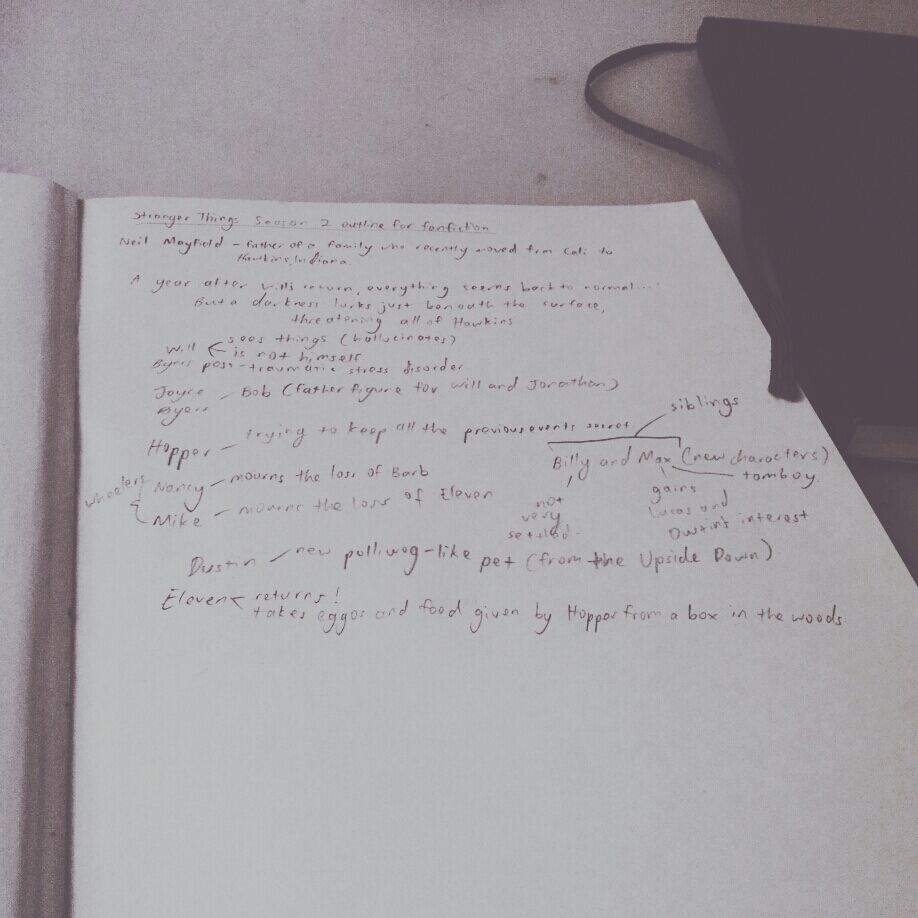 Stranger Things Season 2 outline for fanfiction
Neil Mayfield - father of a family who recently moved from Cali to
Hawkins, Indiana
A year after Will's return, everything seems back to normal...
But a darkness lurks just beneath the surface,
threatening all of Hawkins
Will sees things (hallucinates)
Byers is not himself
post-traumatic stress disorder
Joyce Byers - Bob (father figure for Will and Jonathan)
Hopper - trying to keep all the previous events secret
siblings
Billy and Max (new characters)
tomboy
Wheelers
Nancy - mourns the loss of Barb
Mike - mourns the loss of Eleven
not
very
settled
gains
Lucas and
Dustin's interest
Dustin - new polliwog-like pet (from the Upside Down)
Eleven returns!
takes eggos and food given by Hopper from a box in the woods.